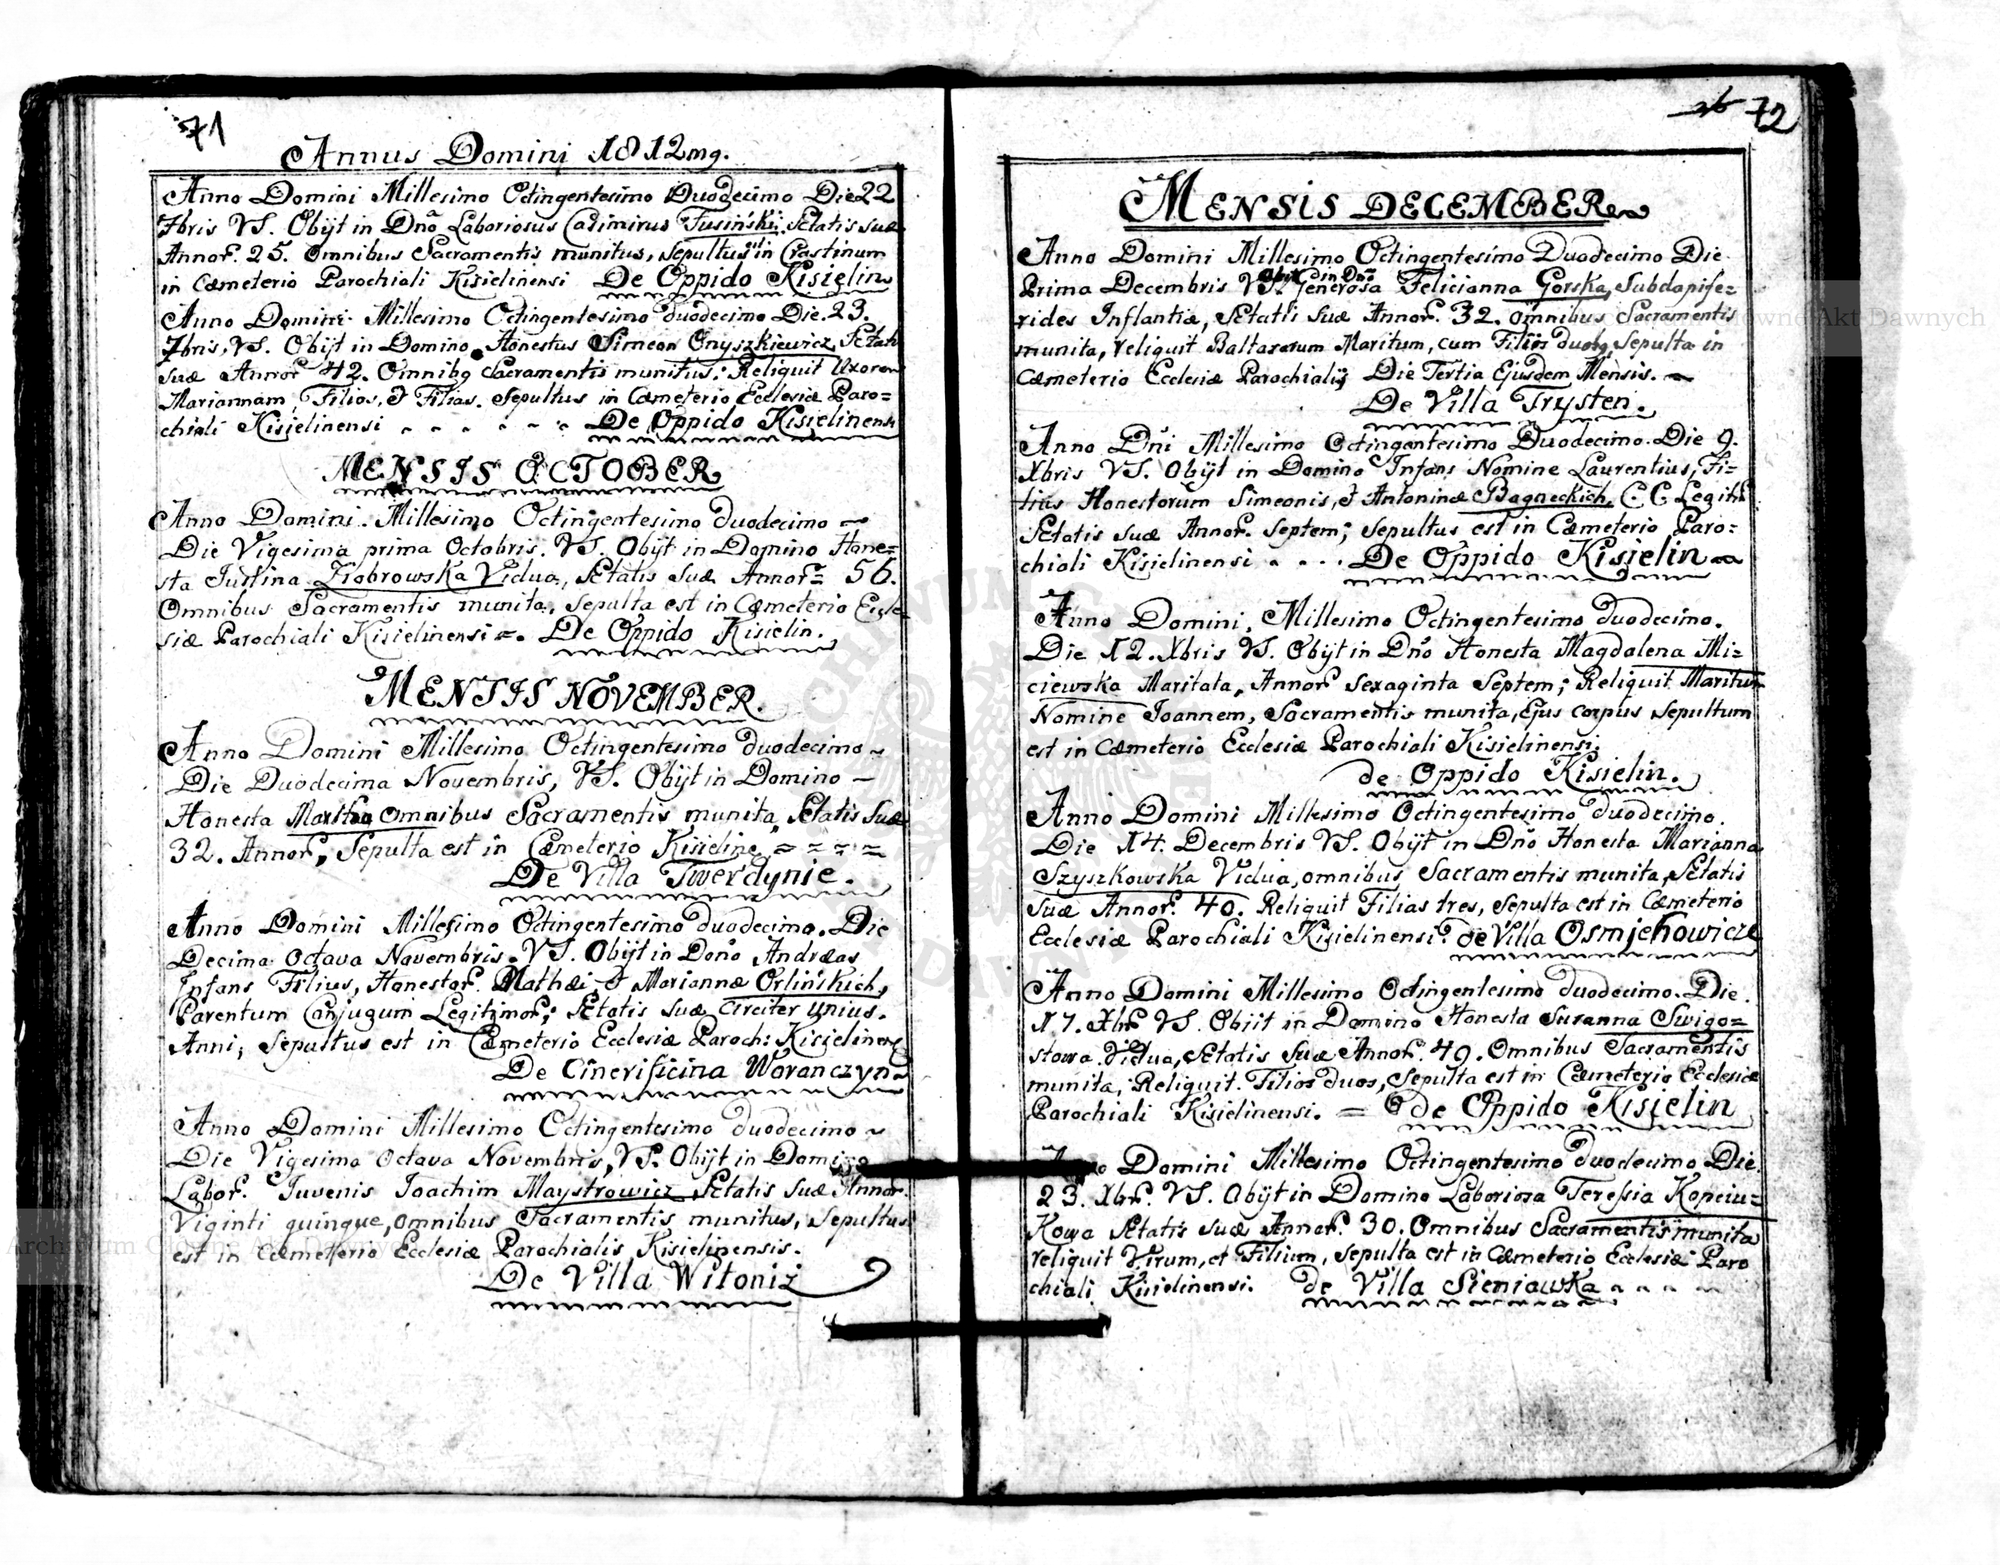 71
Annus Domini 1812mg.
Anno Domini Millesimo Octingentesimo Duodecimo Die 22
7bris VS. Obijt in Dnō Laboriosus Casimirus Tusiński, Ætatis suæ
Annor. 25. Omnibus Sacramentis munitus, sepultus in Crastinum
in Cæmeterio Parochiali Kisielinensi De Oppido Kisielin
Anno Domini Millesimo Octingentesimo duodecimo Die. 23.
7bris, VS. Obijt in Domino Honestus Simeon Onyszkiewicz, Ætatis
suæ Annor. 42. Omnibg Sacramentis munitus; Reliquit Uxorem
Mariannam, Filios, & Filias. Sepultus in Cæmeterio Ecclesiæ Paro=
chiali Kisielinensi De Oppido Kisielinensi
MENSIS OCTOBER
Anno Domini. Millesimo Octingentesimo duodecimo ~
Die Vigesima prima Octobris. VS. Obijt in Domino Hone=
sta Justina Ziobrowska Vidua, Ætatis suæ Annor= 56.
Omnibus Sacramentis munita, sepulta est in Cæmeterio Eccle=
siæ Parochiali Kisielinensi =. De Oppido Kisielin.
MENSIS NOVEMBER.
Anno Domini Millesimo Octingentesimo duodecimo ~
Die Duodecima Novembris, VS. Obijt in Domino —
Honesta omnibus Sacramentis munita, Ætatis suæ
32. Annor, Sepulta est in Cæmeterio Kisieline
De Villa Twerdynie.
Anno Domini Millesimo Octingentesimo duodecimo. Die
Decima Octava Novembris. VS. Obijt in Dnō Andræas
Infans Filius, Honestor. Mathæi & Mariannæ Orlińskich,
Parentum Conjugum Legitimor; Ætatis suæ circiter unius.
Anni, Sepultus est in Cæmeterio Ecclesiæ Paroch: Kisielinens
De Cinerificina Woranczyn
Anno Domini Millesimo Octingentesimo duodecimo ~
Die Vigesima octava Novembris, VS. Obijt in Domino
Labor. Juvenis Joachim Maystrowicz Ætatis suæ Annor.
Viginti quinque, omnibus Sacramentis munitus, sepultus
est in Cæmeterio Ecclesiæ Parochialis Kisielinensis.
De Villa Witoniz
72
MENSIS DECEMBER
Anno Domini Millesimo Octingentesimo Duodecimo Die.
Prima Decembris VS. Obijt in Dnō Generosa Felicianna Gorska, Subdapife=
rides Inflantiæ, Ætatis suæ Annor. 32. omnibus Sacramentis
munita, reliquit Baltazarum Maritum, cum Filijs duobg, Sepulta in
Cæmeterio Ecclesiæ Parochialis Die Tertia Ejusdem Mensis.
De Villa Trysten.
Anno Dñi Millesimo Octingentesimo Duodecimo. Die 9.
Xbris VS. Obijt in Domino Infans Nomine Laurentius, Fi=
lius Honestorum Simeonis, & Antoninæ Bagneckich, C.C. Legitm
Ætatis suæ Annor. Septem; sepultus est in Cæmeterio Paro=
chiali Kisielinensi . . . De Oppido Kisielin
Anno Domini, Millesimo Octingentesimo duodecimo.
Die 12. Xbris VS. Obijt in Dnō Honesta Magdalena Mi=
ciewska Maritata, Annor. sexaginta Septem; Reliquit Maritum
Nomine Joannem, Sacramentis munita, Ejus corpus sepultum
est in Cæmeterio Ecclesiæ Parochiali Kisielinensi.
de Oppido Kisielin.
Anno Domini Millesimo Octingentesimo duodecimo.
Die 14. Decembris VS. Obijt in Dnō Honesta Marianna
Szyszkowska Vidua, omnibus Sacramentis munita, Ætatis
suæ Annor. 40. Reliquit Filias tres, sepulta est in Cæmeterio
Ecclesiæ Parochiali Kisielinensi. de Villa Osmiehowicze
Anno Domini Millesimo Octingentesimo duodecimo. Die.
17. Xbr. VS. Obiit in Domino Honesta Suzanna Swigo=
stowa Vidua, Ætatis suæ Annor. 49. Omnibus Sacramentis
munita, Reliquit. Filios duos, Sepulta est in Cæmeterio Ecclesiæ
Parochiali Kisielinensi. = de Oppido Kisielin
Anno Domini Millesimo Octingentesimo duodecimo Die
23. Xbr. VS. Obijt in Domino Laboriosa Teressia Kopciu=
Kowa Ætatis suæ Annor. 30. Omnibus Sacramentis munita
reliquit Virum, et Filium, sepulta est in Cæmeterio Ecclesiæ Paro
chiali Kisielinensi. de Villa Sieniawka